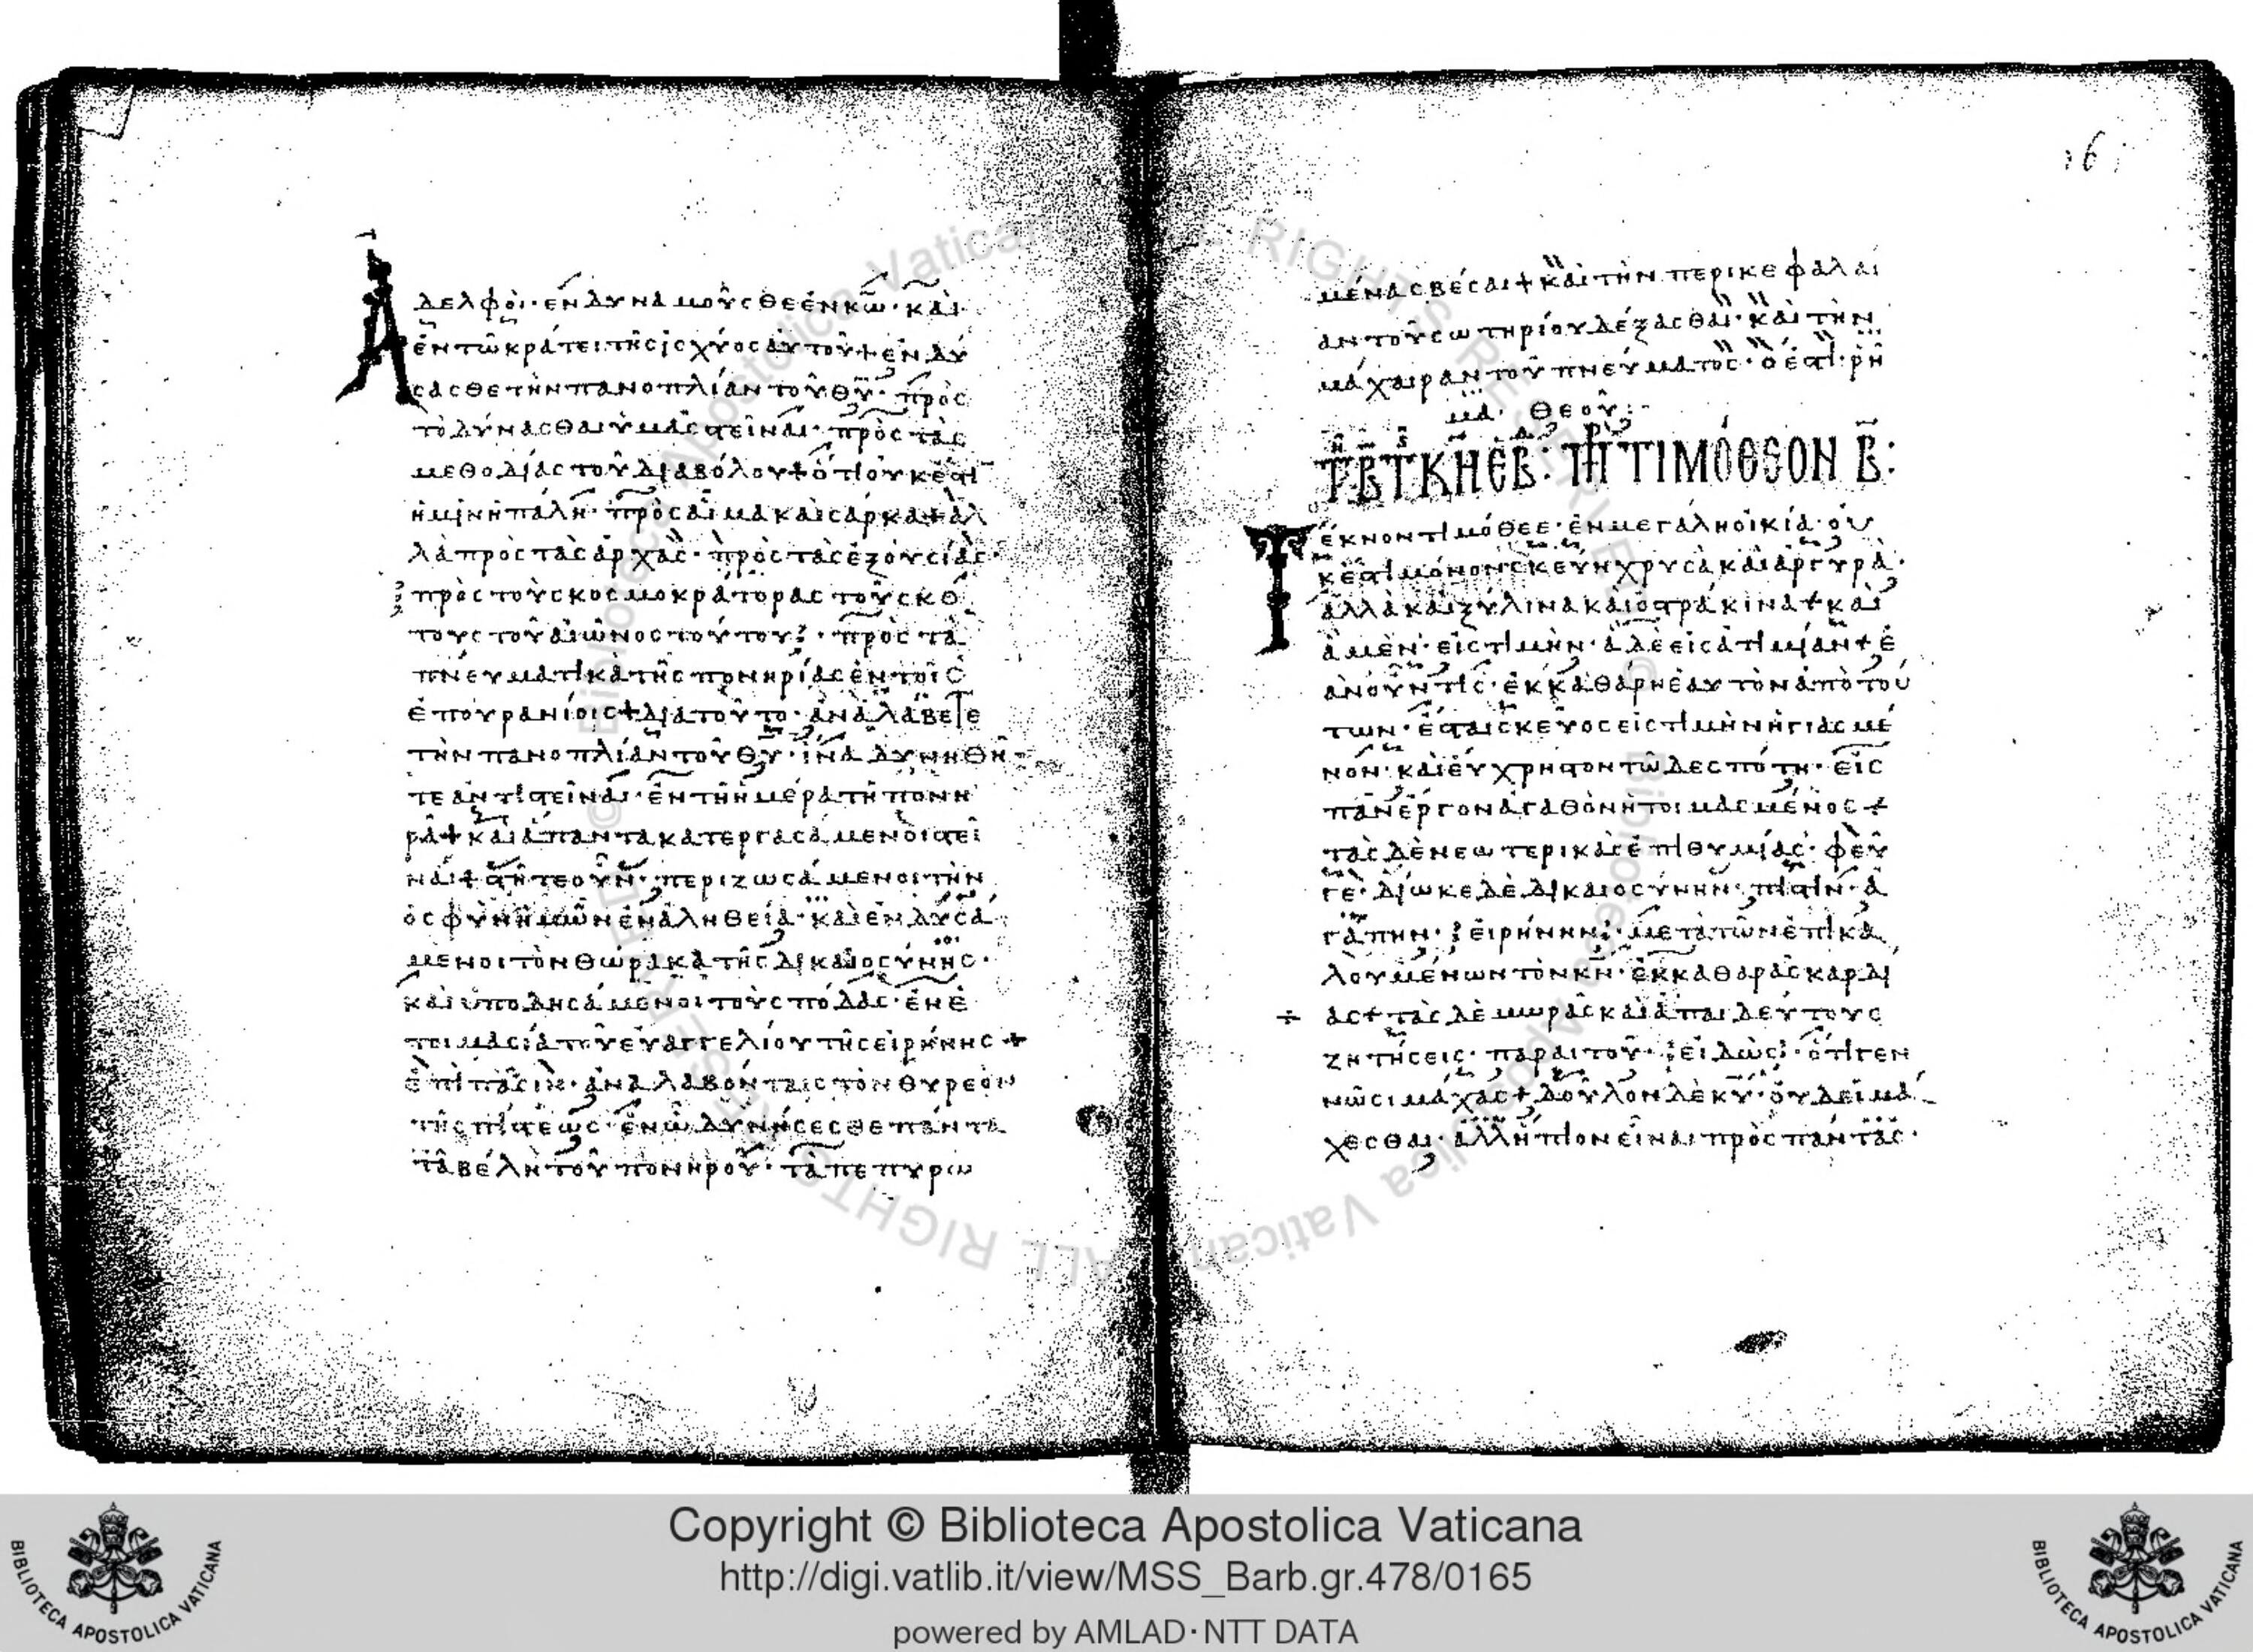 Ἀδελφοί· ἐνδυναμοῦσθε ἐν κ͞ω· καὶ
ἐν τῶ κράτει τῆς ἰσχύος αὐτοῦ + ἐνδύ
σασθε τὴν πανοπλίαν τοῦ θ͞υ· πρὸς
τὸ δύνασθαι ὑμᾶς στεῖναι· πρὸς τὰς
μεθοδίας τοῦ διαβόλου + ὅτι οὐκ ἔστι
ἡμῖν ἡ πάλη· πρὸς αἷμα καὶ σάρκα + ἀλ
λὰ πρὸς τὰς ἀρχὰς· πρὸς τὰς ἐξουσίας·
πρὸς τοὺς κοσμοκράτορας τοῦ σκό
τους τοῦ αἰῶνος τούτου· πρὸς τὰ
πνευματικὰ τῆς πονηρίας ἐν τοῖς
ἐπουρανίοις + διατοῦτο· ἀναλάβετε
τὴν πανοπλίαν τοῦ θ͞υ· ἵνα δυνηθῆ
τε ἀντιστεῖναι· ἐν τῇ ἡμέρα τῇ πονη
ρᾶ + καὶ ἅπαντα κατεργασάμενοι στεῖ
ναι + στῆτε οὖν· περιζωσάμενοι τὴν
ὀσφὺν ἡμῶν ἐν ἀληθεία· καὶ ἐνδυσά
μενοι τὸν θώρακα τῆς δικαιοσύνης·
καὶ ὑποδησάμενοι τοὺς πόδας· ἐν ἑ
τοιμασία τοῦ εὐαγγελίου τῆς εἰρήνης +
ἐπὶ πᾶσιν· ἀναλαβόνταις τὸν θυρεὸν
τῆς πίστεως· ἐν ὧ δυνήσεσθε πάντα
τὰ βέλη τοῦ πονηροῦ· τὰ πεπυρω
μένα σβέσαι + καὶ τὴν περικεφαλαί
αν τοῦ σωτηρίου δέξασθαι· καὶ τὴν
μάχαιραν τοῦ πνεύματος· ὅ ἐστι· ρῆ
μα· θεοῦ:
ΤΙΜΟΘΕΟΝ Β:
Τέκνον τιμόθεε· ἐν μεγάλη οἰκία· οὐ
κ ἔστι μόνον σκεύη χρυσὰ καὶ ἀργυρὰ·
ἀλλὰ καὶ ξύλινα καὶ ὀστράκινα + καὶ
ἃ μὲν· εἰς τιμὴν· ἃ δὲ εἰς ἀτιμίαν + ἐ
ὰν οὖν τίς· ἐκκαθάρη ἑαυτὸν ἀπὸ τού
των· ἔσται σκεῦος εἰς τιμὴν ἡγιασμέ
νον· καὶ εὔχρηστον τῶ δεσπότη· εἰς
πᾶν ἔργον ἀγαθὸν ἡτοιμασμένος +
τὰς δὲ νεωτερικὰς ἐπιθυμίας· φεῦ
γε· δίωκε δὲ δικαιοσύνην· πίστιν· ἀ
γάπην· εἰρήνην· μετὰ τῶν ἐπικα
λουμένων τὸν κ͞ν· ἐκ καθαρᾶς καρδί
ας + τὰς δὲ μωρὰς καὶ ἀπαιδεύτους
ζητήσεις· παραιτοῦ· εἰδὼς· ὅτι γεν
νῶσι μάχας + δοῦλον δὲ κ͞υ· οὐ δεῖ μά
χεσθαι· ἀλλ' ἤπιον εἶναι πρὸς πάντας·
Copyright © Biblioteca Apostolica Vaticana
http://digi.vatlib.it/view/MSS_Barb.gr.478/0165
powered by AMLAD·NTT DATA
BIBLIOTECA APOSTOLICA VATICANA
BIBLIOTECA APOSTOLICA VATICANA